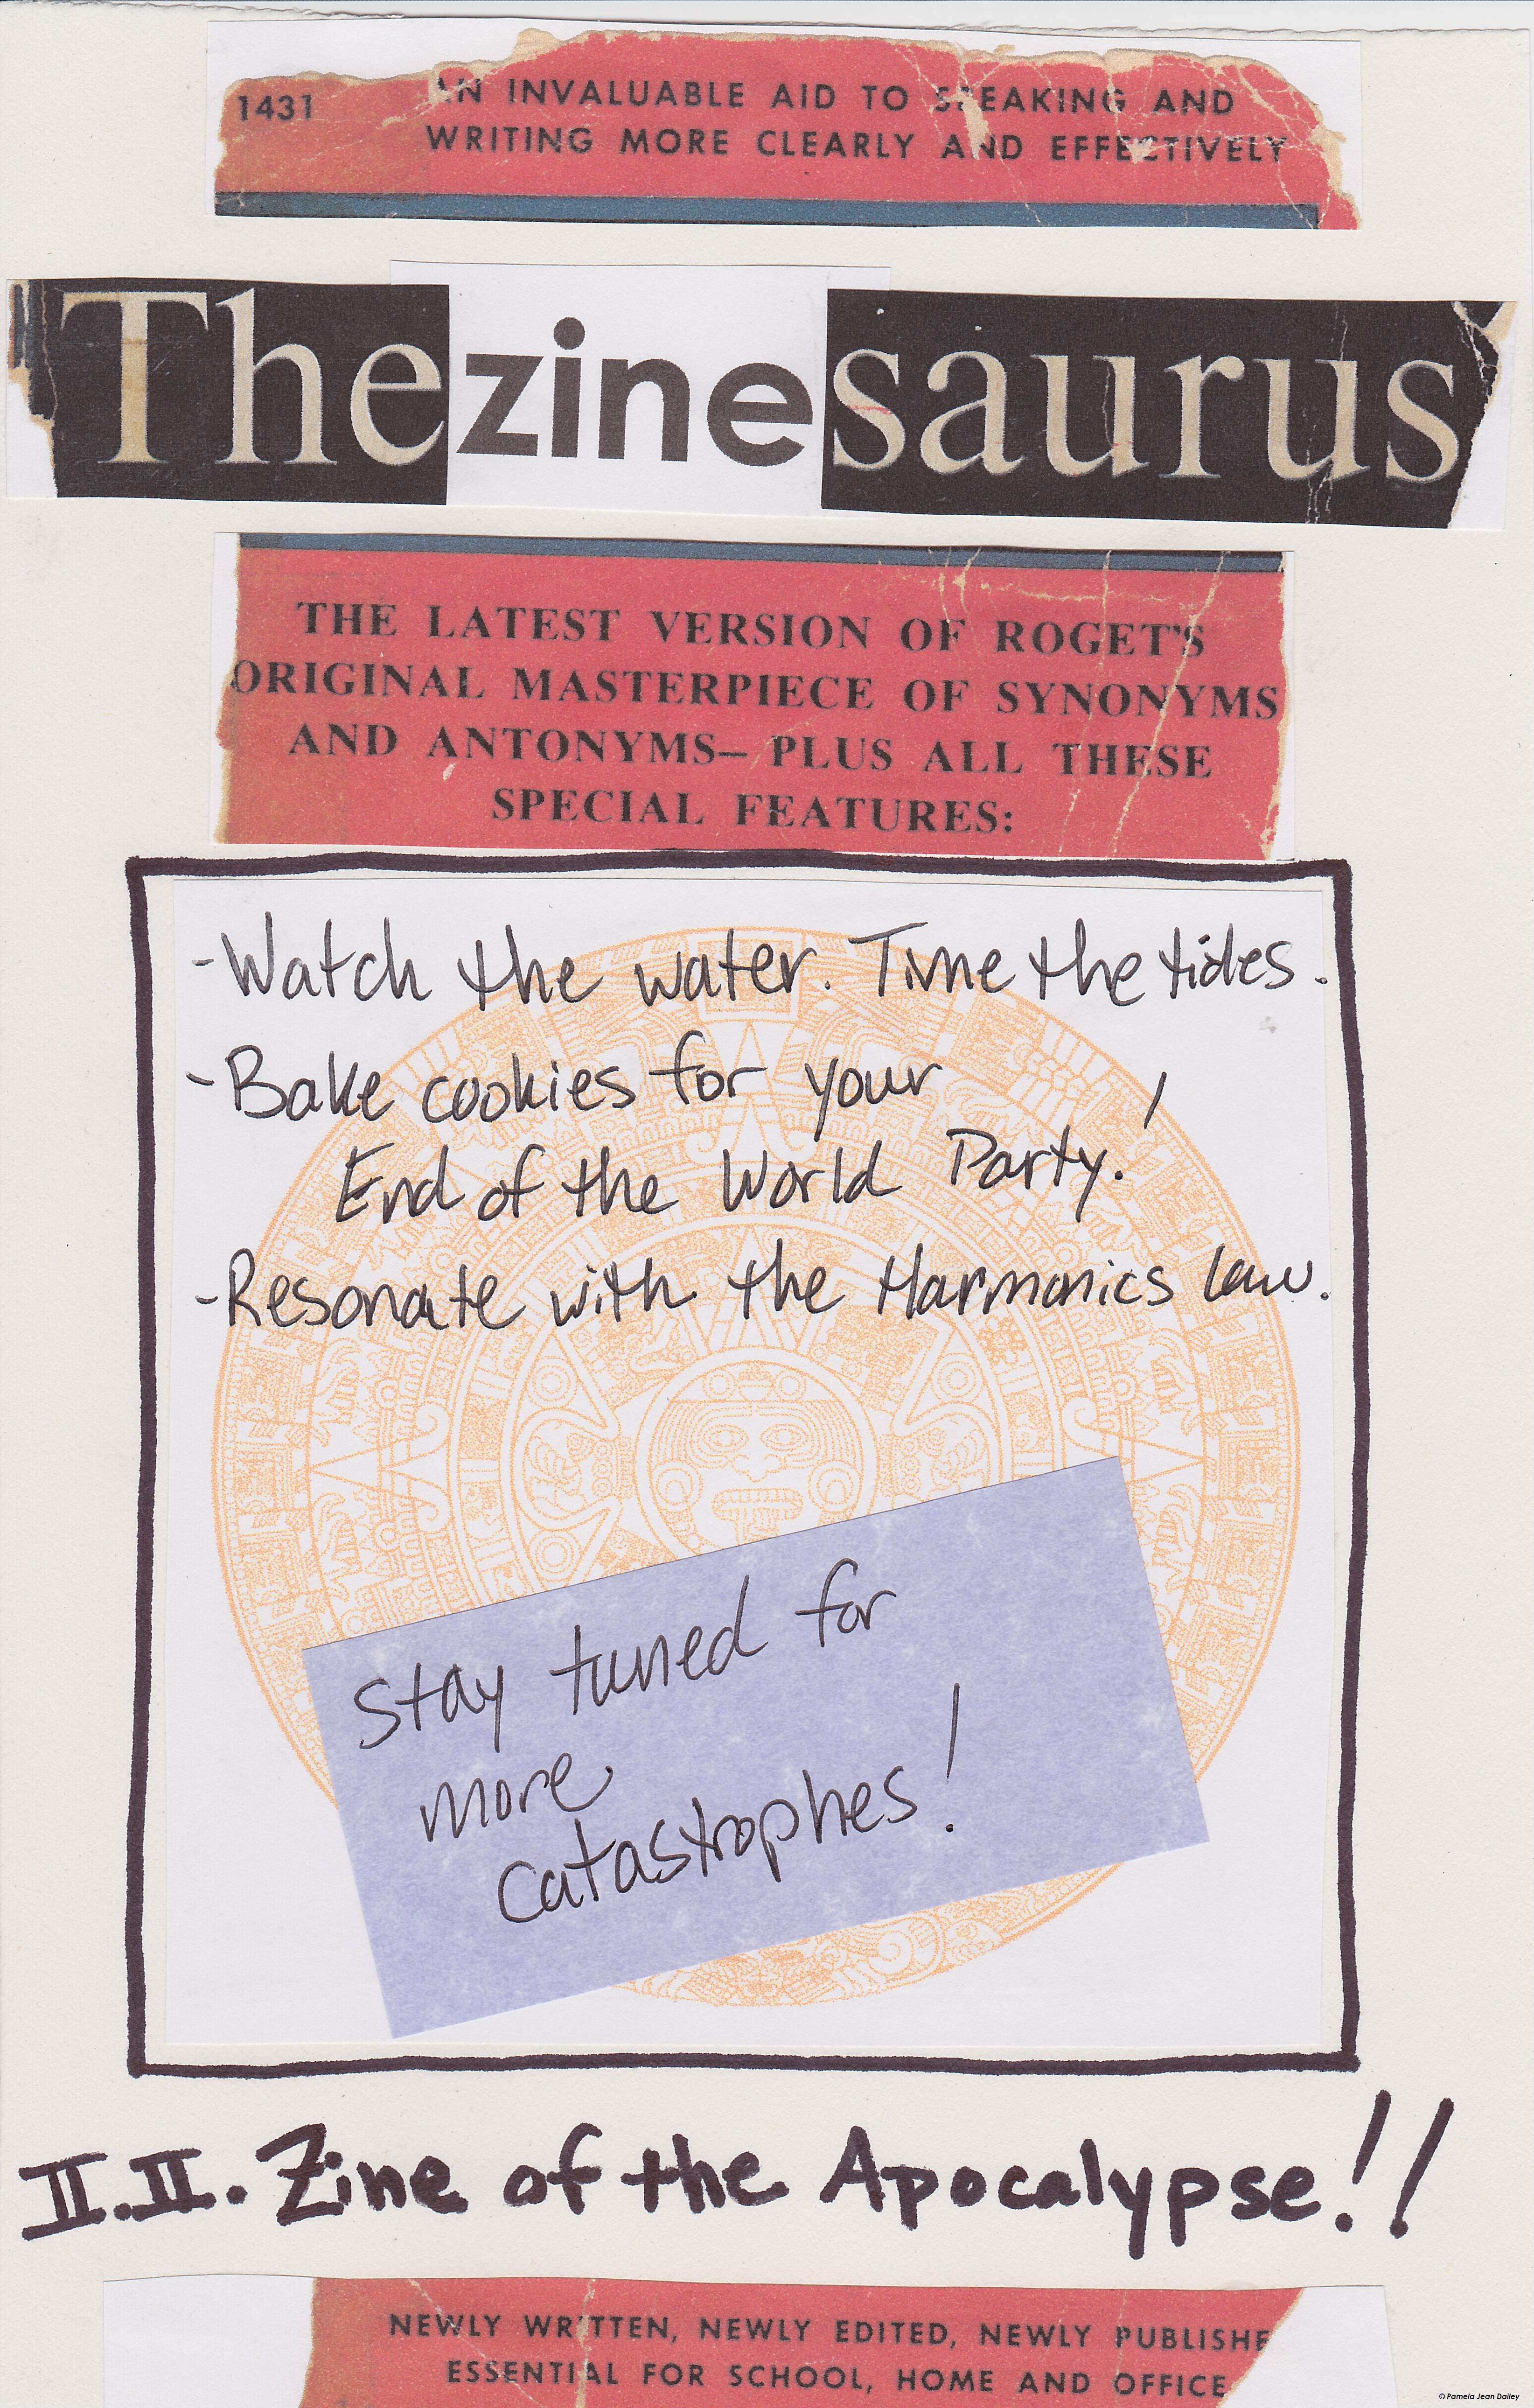 1431
AN INVALUABLE AID TO SPEAKING AND
WRITING MORE CLEARLY AND EFFECTIVELY
Thezinesaurus
THE LATEST VERSION OF ROGET'S
ORIGINAL MASTERPIECE OF SYNONYMS
AND ANTONYMS— PLUS ALL THESE
SPECIAL FEATURES:
-Watch the water. Time the tides.
-Bake cookies for your
End of the World Party!
-Resonate with the Harmonics law.
Stay tuned for
more
catastrophes!
II.II. Zine of the Apocalypse!!
NEWLY WRITTEN, NEWLY EDITED, NEWLY PUBLISHE
ESSENTIAL FOR SCHOOL, HOME AND OFFICE
© Pamela Jean Dailey